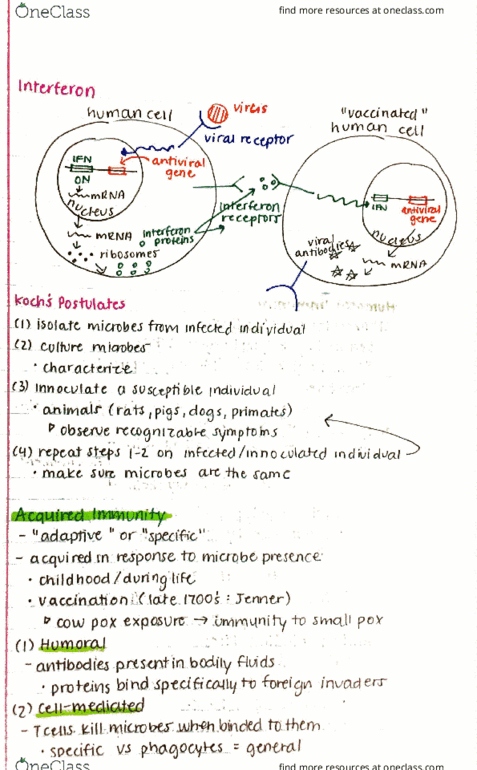 OneClass
find more resources at oneclass.com
Interferon
human cell
virus
"vaccinated"
human cell
viral receptor
IFN
ON
antiviral
gene
mRNA
nucleus
mRNA
interferon
proteins
ribosomes
interferon
receptors
IFN
antiviral
gene
nucleus
viral
antibodies
mRNA
Koch's Postulates
(1) isolate microbes from infected individual
(2) culture microbes
· characterize
(3) innoculate a susceptible individual
· animals (rats, pigs, dogs, primates)
observe recognizable symptoms
(4) repeat steps 1-2 on infected/innoculated individual
· make sure microbes are the same
Acquired Immunity
- "adaptive" or "specific"
- acquired in response to microbe presence
· childhood/during life
· vaccination (late 1700's : Jenner)
cow pox exposure → immunity to small pox
(1) Humoral
- antibodies present in bodily fluids
· proteins bind specifically to foreign invaders
(2) Cell-mediated
- T cells kill microbes when binded to them
· specific vs phagocytes = general
OneClass
find more resources at oneclass.com